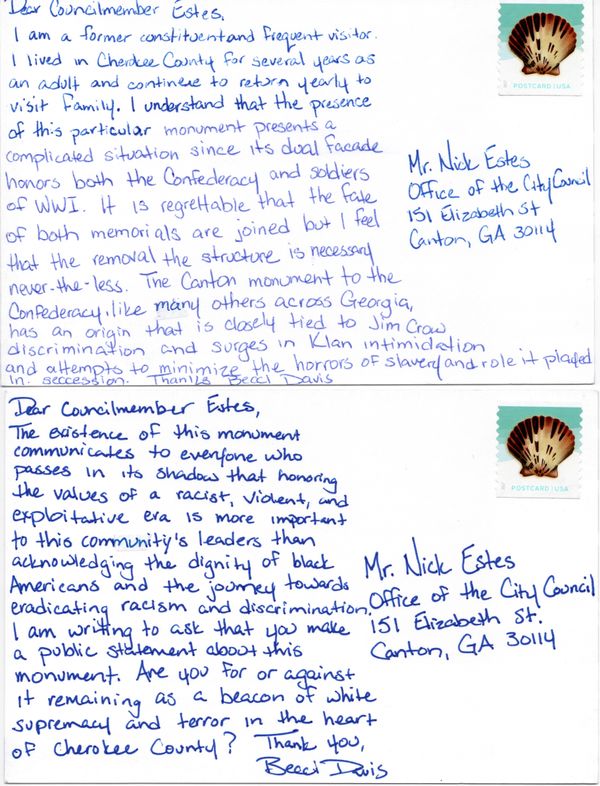 Dear Councilmember Estes,
I am a former constituent and frequent visitor.
I lived in Cherokee County for several years as
an adult and continue to return yearly to
visit family. I understand that the presence
of this particular monument presents a
complicated situation since its dual facade
honors both the Confederacy and soldiers
of WWI. It is regrettable that the fate
of both memorials are joined but I feel
that the removal the structure is necessary
never-the-less. The Canton monument to the
Confederacy, like many others across Georgia,
has an origin that is closely tied to Jim Crow
discrimination and surges in Klan intimidation
and attempts to minimize the horrors of slavery and role it played
in secession. Thanks Becci Davis
POSTCARD | USA
Mr. Nick Estes
Office of the City Council
151 Elizabeth St
Canton, GA 30114
Dear Councilmember Estes,
The existence of this monument
communicates to everyone who
passes in its shadow that honoring
the values of a racist, violent, and
exploitative era is more important
to this community's leaders than
acknowledging the dignity of black
Americans and the journey towards
eradicating racism and discrimination.
I am writing to ask that you make
a public statement about this
monument. Are you for or against
it remaining as a beacon of white
supremacy and terror in the heart
of Cherokee County? Thank you,
Becci Davis
POSTCARD | USA
Mr. Nick Estes
Office of the City Council
151 Elizabeth St.
Canton, GA 30114